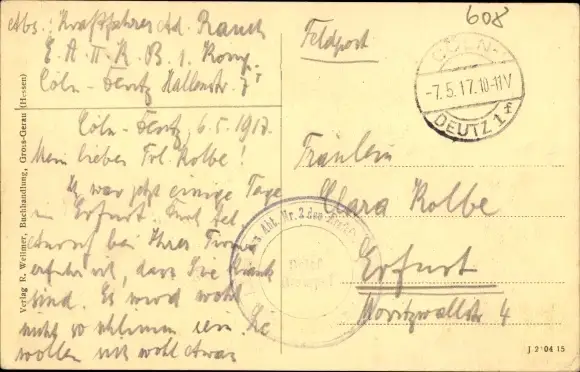 Abs: Kraftfahrer Ad. Rauch
E. A. II. K. B. 1. Komp.
Cöln-Deutz Hallenstr. 7
Cöln-Deutz, 6.5.1917.
Mein liebes Frl. Kolbe!
Ich war jetzt einige Tage
in Erfurt. Und
bei Ihrer Firma
erfuhr ich, dass Sie krank
sind. Es wird wohl
nicht so schlimm sein. Sie
wollen uns wohl etwas
Feldpost
608
CÖLN-
-7.5.17.10-11V
DEUTZ 1 f
Fräulein
Clara Kolbe
Erfurt
Moritzwallstr 4
Abt. Nr. 2 des
Brief
Stempel
Verlag R. Wellmer, Buchhandlung, Gross-Gerau (Hessen)
J 2 04 15